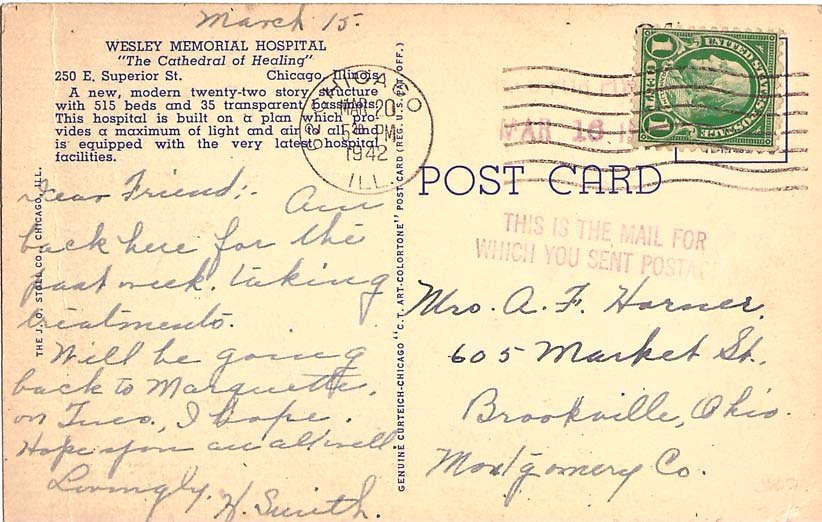 March 15.
WESLEY MEMORIAL HOSPITAL
"The Cathedral of Healing"
250 E. Superior St. Chicago, Illinois
A new, modern twenty-two story structure
with 515 beds and 35 transparent bassinets.
This hospital is built on a plan which pro-
vides a maximum of light and air to all and
is equipped with the very latest hospital
facilities.
Dear Friend:- Am
back here for the
past week. taking
treatments.
Will be going
back to Marquette.
on Tues., I hope.
Hope you are all well
Lovingly, H. Smith.
THE J. O. STOLL CO., CHICAGO, ILL.
GENUINE CURTEICH-CHICAGO "C.T. ART-COLORTONE" POST CARD (REG. U.S. PAT. OFF.)
CHICAGO
MAR 20
5 PM
1942
ILL.
MAR 16
1 1
POST CARD
THIS IS THE MAIL FOR
WHICH YOU SENT POSTA
Mrs. A. F. Horner.
605 Market St.,
Brookville, Ohio.
Montgomery Co.